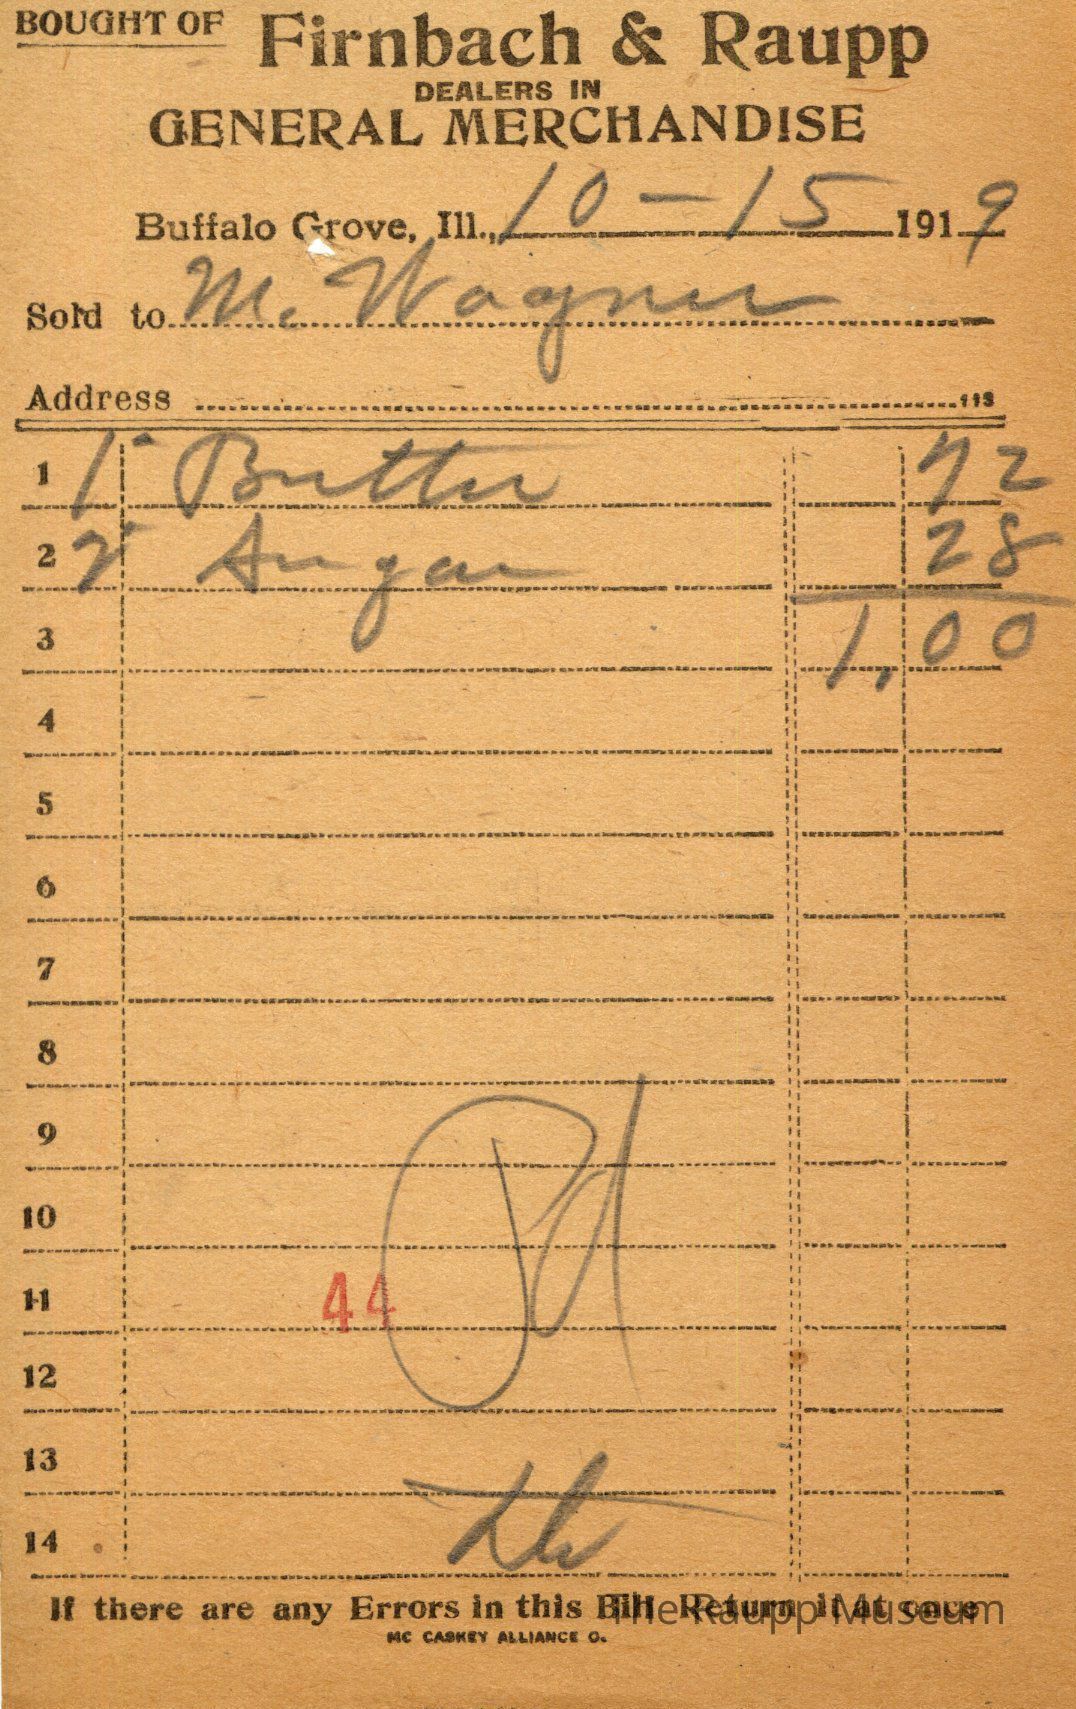 BOUGHT OF Firnbach & Raupp
DEALERS IN
GENERAL MERCHANDISE
Buffalo Grove, Ill., 10-15 1919
Sold to M. Wagner
Address
1 1 Butter 72
2 2 Sugar 28
3 1,00
4
5
6
7
8
9
10
11 44
12
13
14
Pd
If there are any Errors in this Bill Return it at once
The Raupp Museum
MC CASKEY ALLIANCE O.